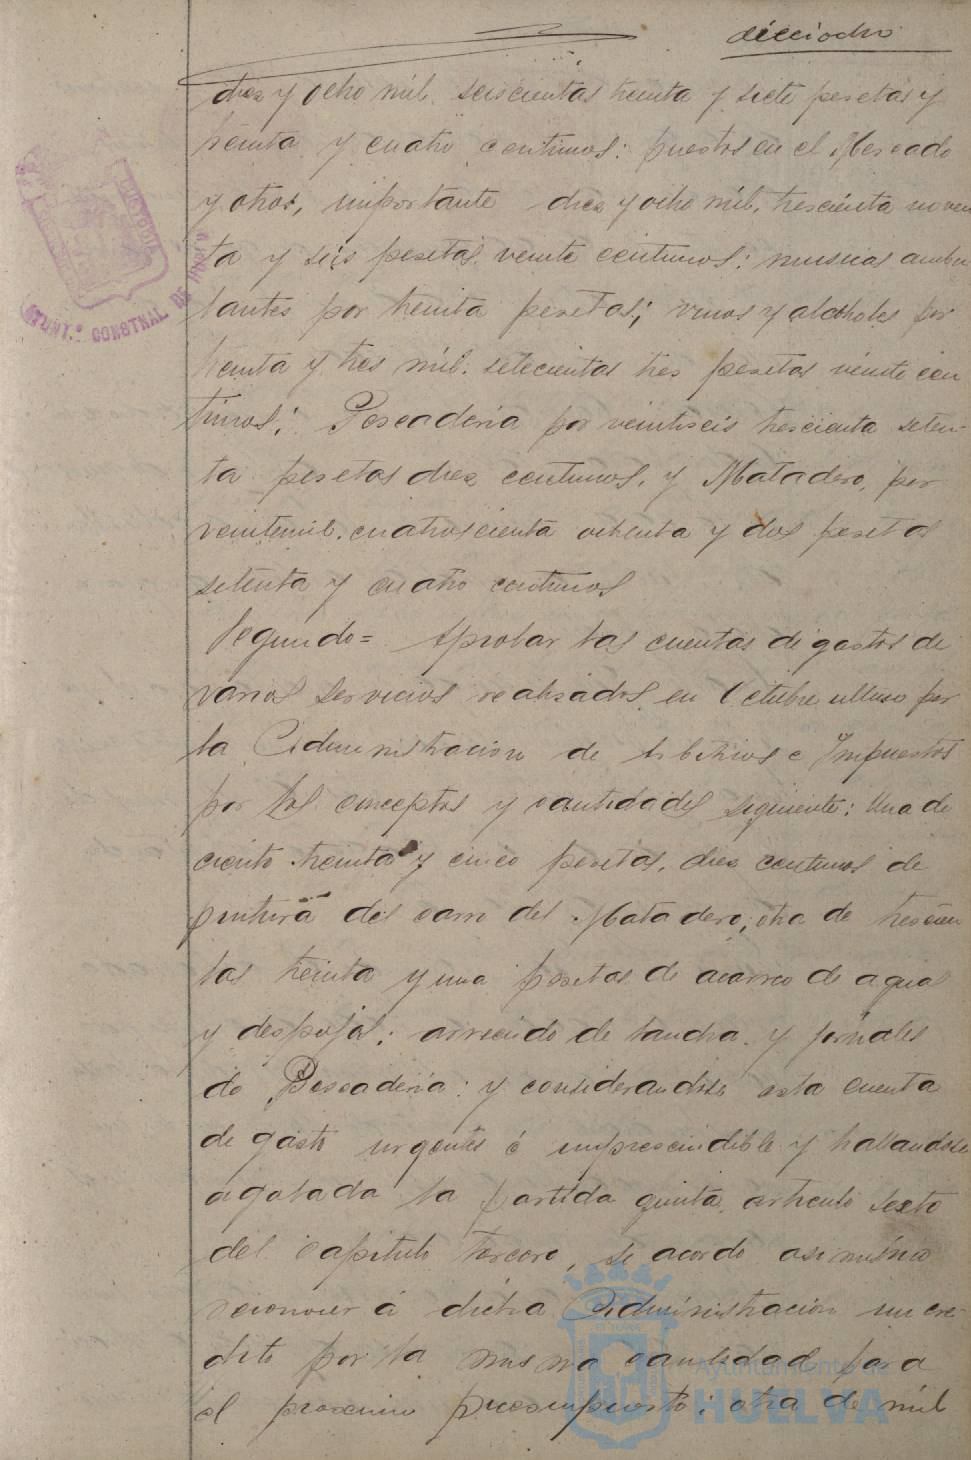 dieciocho
diez y ocho mil. seiscientas treinta y siete pesetas y
treinta y cuatro centimos: puestos en el Mercado
y otros, importante diez y ocho mil, trescienta noven
ta y seis pesetas veinte centimos; musicas ambu
lantes por treinta pesetas; vinos y alcoholes por
treinta y tres mil. setecientas tres pesetas veinte cen
timos; Pescaderia por veintiseis trescienta seten-
ta pesetas diez centimos, y Matadero, por
veintemil. cuatroscienta ochenta y dos pesetas
setenta y cuatro centimos
Segundo= Aprobar las cuentas de gastos de
varios servicios realizados en Octubre ultimo por
la Administracion de Arbitrios e Impuestos
por los conceptos y cantidades siguiente: Una de
ciento treinta y cinco pesetas, diez centimos de
pintura del carro del Matadero; otra de trescien
tas treinta y una pesetas de acarreo de agua
y despojos; arriendo de lancha y jornales
de Pescaderia: y considerandose esta cuenta
de gasto urgentes é imprescindible y hallandose
agotada la partida quinta, articulo sexto
del capitulo tercero, se acordo asimismo
reconocer á dicha Administracion un cre-
dito por la misma cantidad para
el proximo presupuesto; otra de mil
AYUNT.º CONSTNAL DE HUELVA
Ayuntamiento de
HUELVA